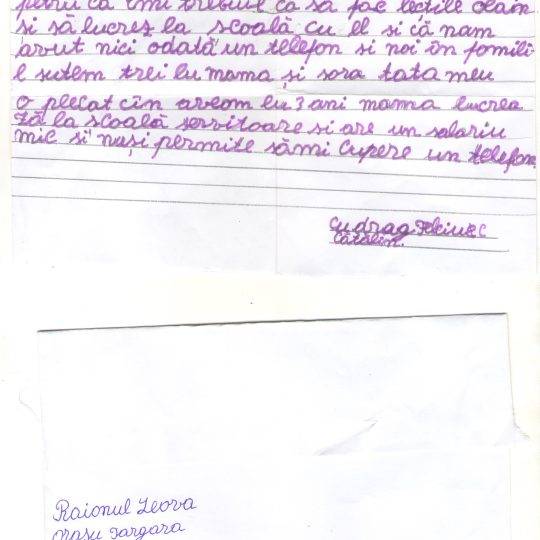 pentru că îmi trebuie ca să fac lecțiile olain
si să lucrez la scoală cu el si că nam
avut nici odată un telefon si noi în famili
e sutem trei eu mama și sora tata meu
o plecat cîn aveam eu 3 ani mama lucrea
ză la scoală servitoare si are un salariu
mic si nuși permite sămi cupere un telefon.
cu drag
Cătălin
Raionul Leova
orașu Iargara